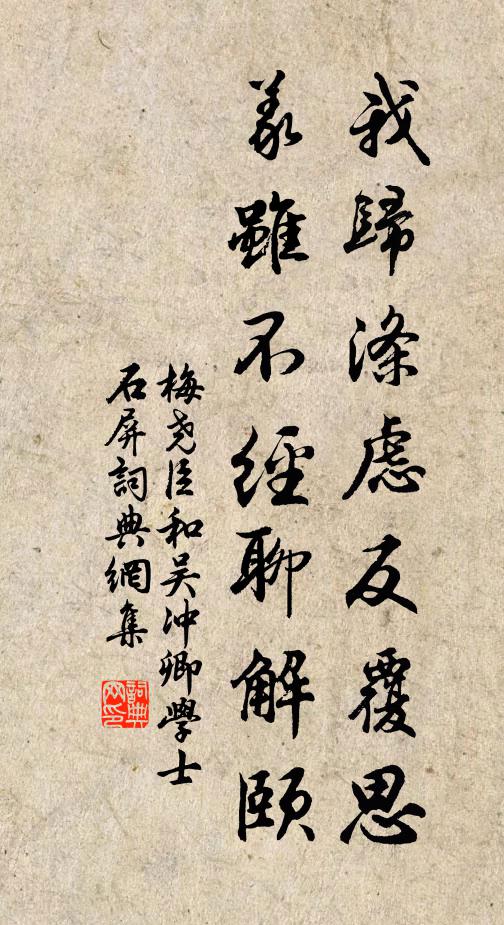 我歸滌慮反覆思
義雖不經聊解頤
梅堯臣和吴冲卿學士
石屏詞典網集
詞典
网印